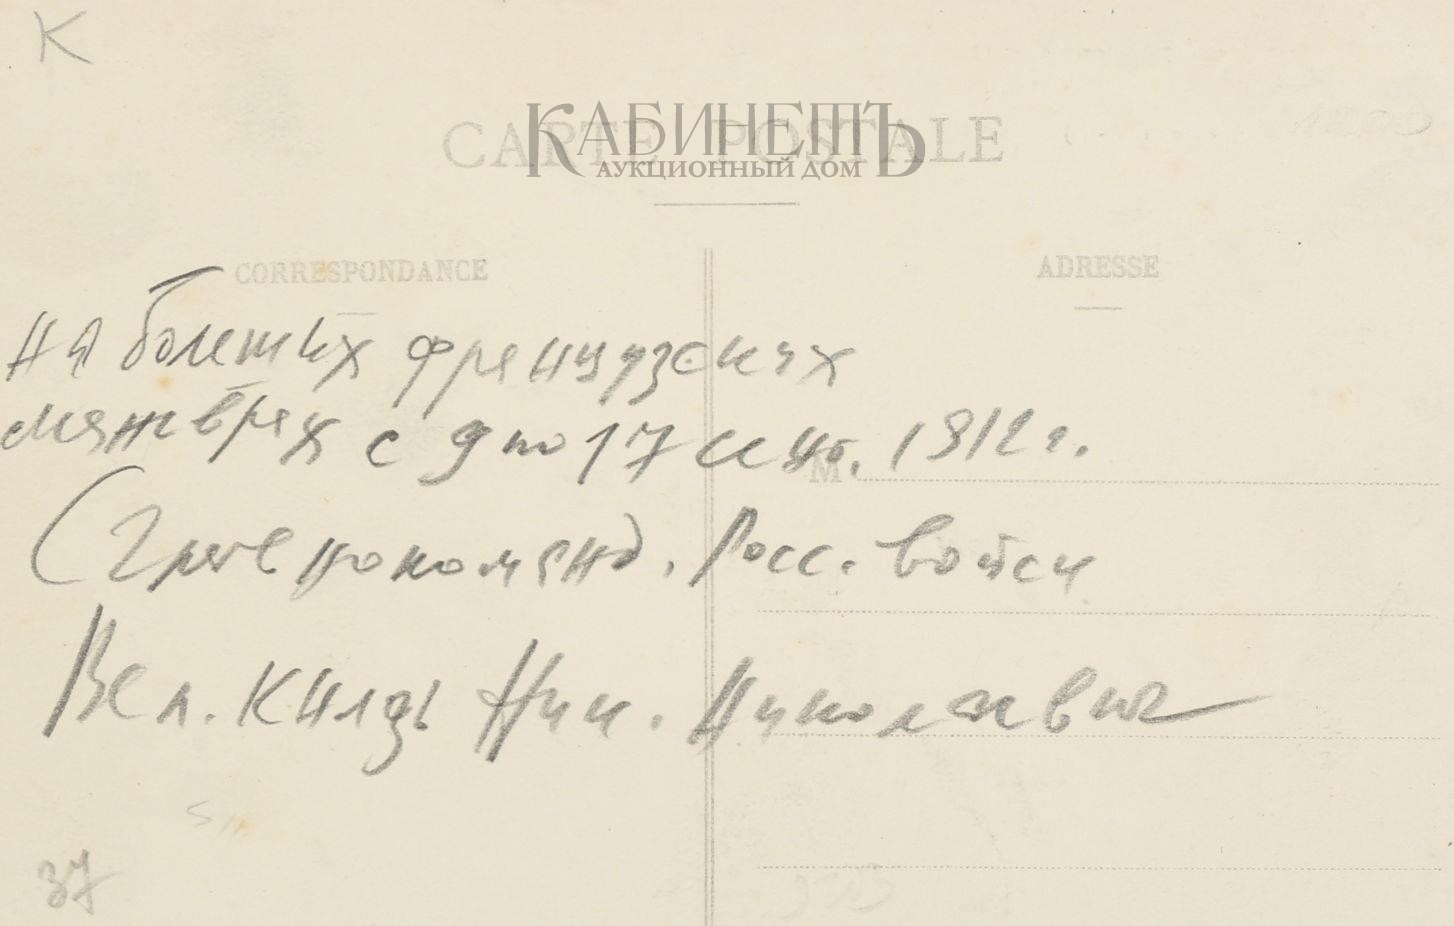 К
CARTE POSTALE
КАБИНЕТЪ
АУКЦИОННЫЙ ДОМ
CORRESPONDANCE
ADRESSE
на больших французских
маневрах с 9 по 17 сент. 1912 г.
M
(Главнокоманд. Росс. войск
Вел. Князь Ник. Николаевич
37